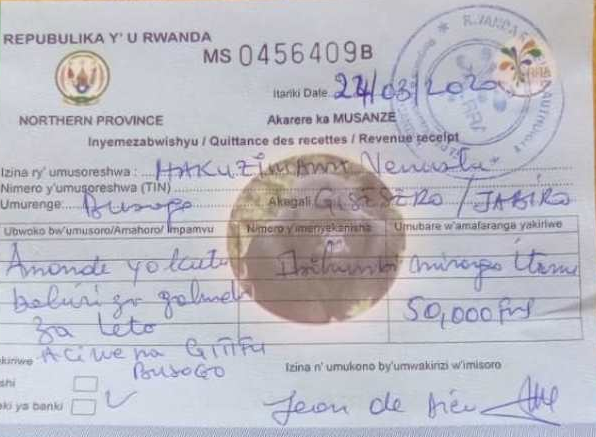 REPUBULIKA Y' U RWANDA
MS 0456409B
Itariki Date 24/03/2020
NORTHERN PROVINCE
Akarere ka MUSANZE
Inyemezabwishyu / Quittance des recettes / Revenue receipt
Izina ry' umusoreshwa : HAKUZIMANA Venuste
Nimero y'umusoreshwa (TIN)
Umurenge: Busogo Akagali GISESERO / JABIRO
Ubwoko bw'umusoro/Amahoro/ Impamvu Nimero y'imenyekanisha Umubare w'amafaranga yakiriwe
Amande yo kuta Ibihumbi mirongo itanu
za leta 50,000 frs
kiriwe Aciwe na GITIFU
BUSOGO Izina n' umukono by'umwakirizi w'imisoro
shi
eki ya banki Jean de Dieu
RRA
RRA